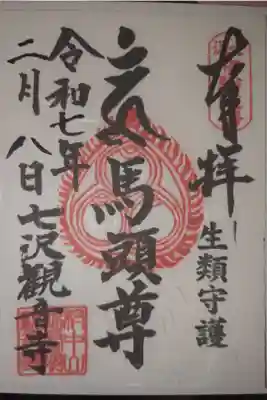 奉拝
生類守護
馬頭尊
令和七年
二月八日
七沢觀音寺